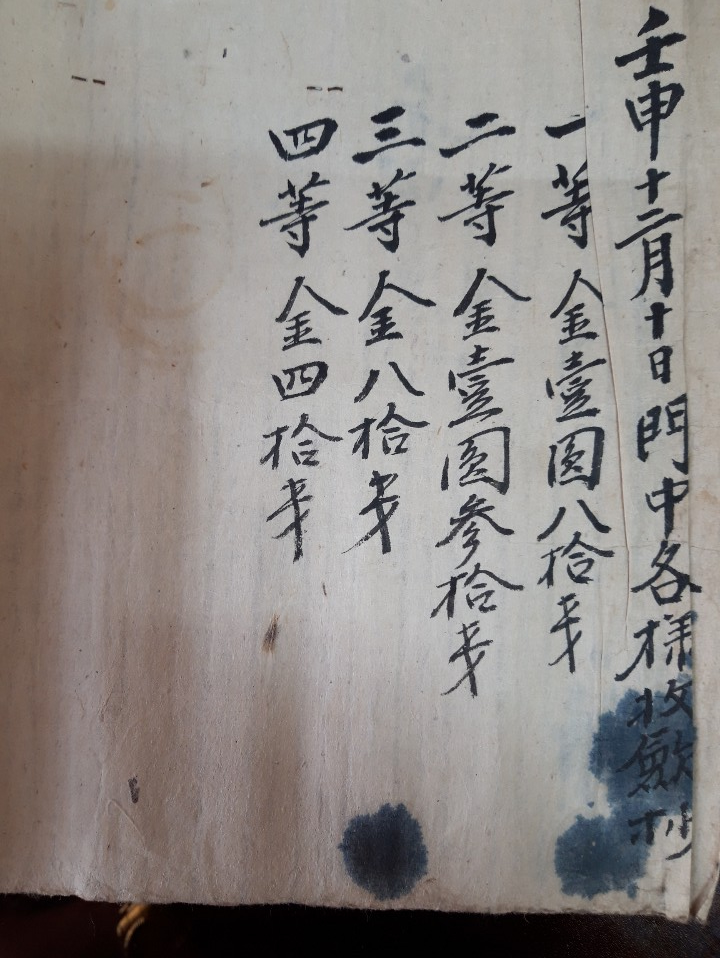 壬申十二月十日門中各樣收斂抄
一等 金壹圓八拾戔
二等 金壹圓參拾戔
三等 金八拾戔
四等 金四拾戔